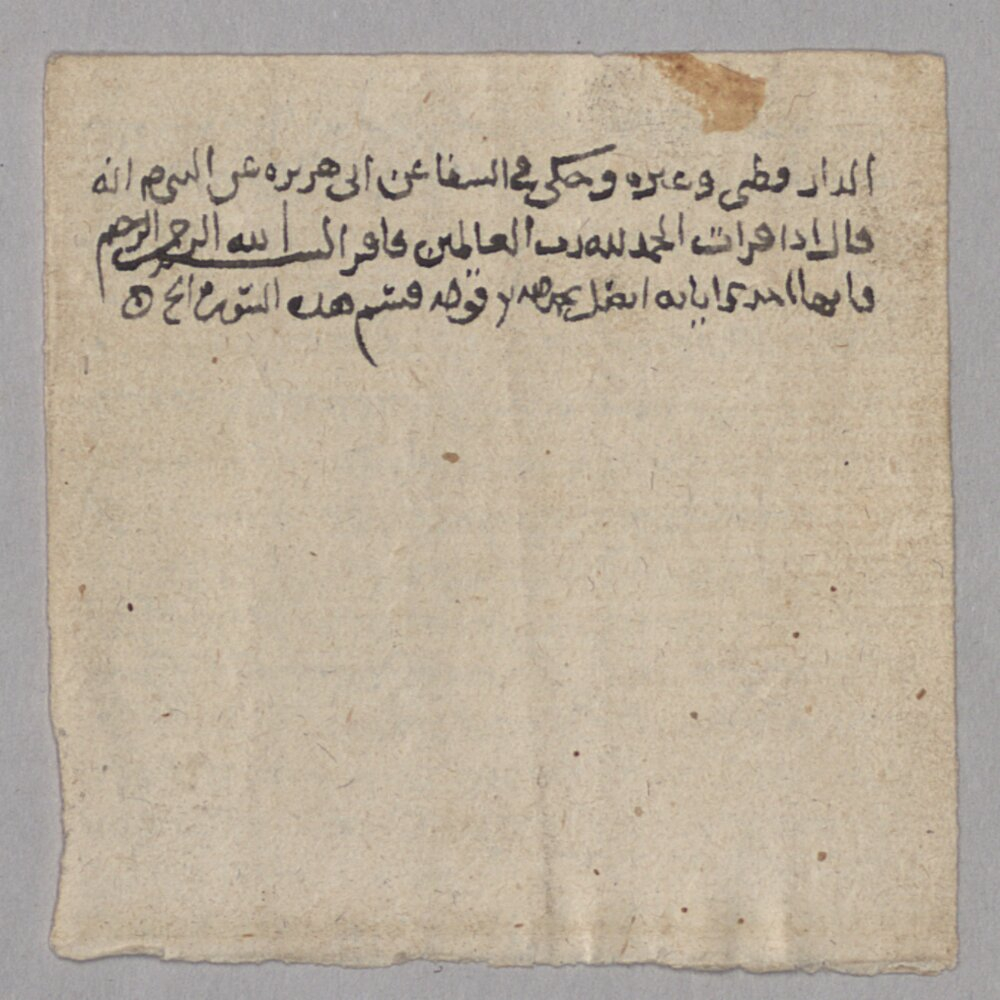 الدار قطني وغيره وحكى في الشفا عن ابي هريره عن النبي م انه
قال اذا قرات الحمد لله رب العالمين فاقر بسم الله الرحمن الرحيم
فانها احدى اياته قوله قسم هذه السورة الخ